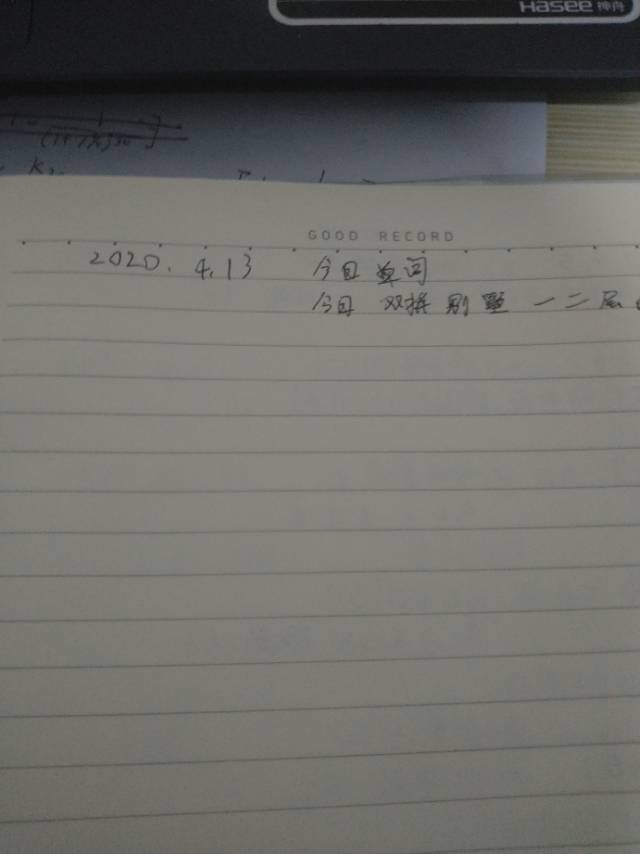 Hasee 神舟
GOOD RECORD
2020. 4.13 今日单词
今日 双拼别墅 一二层